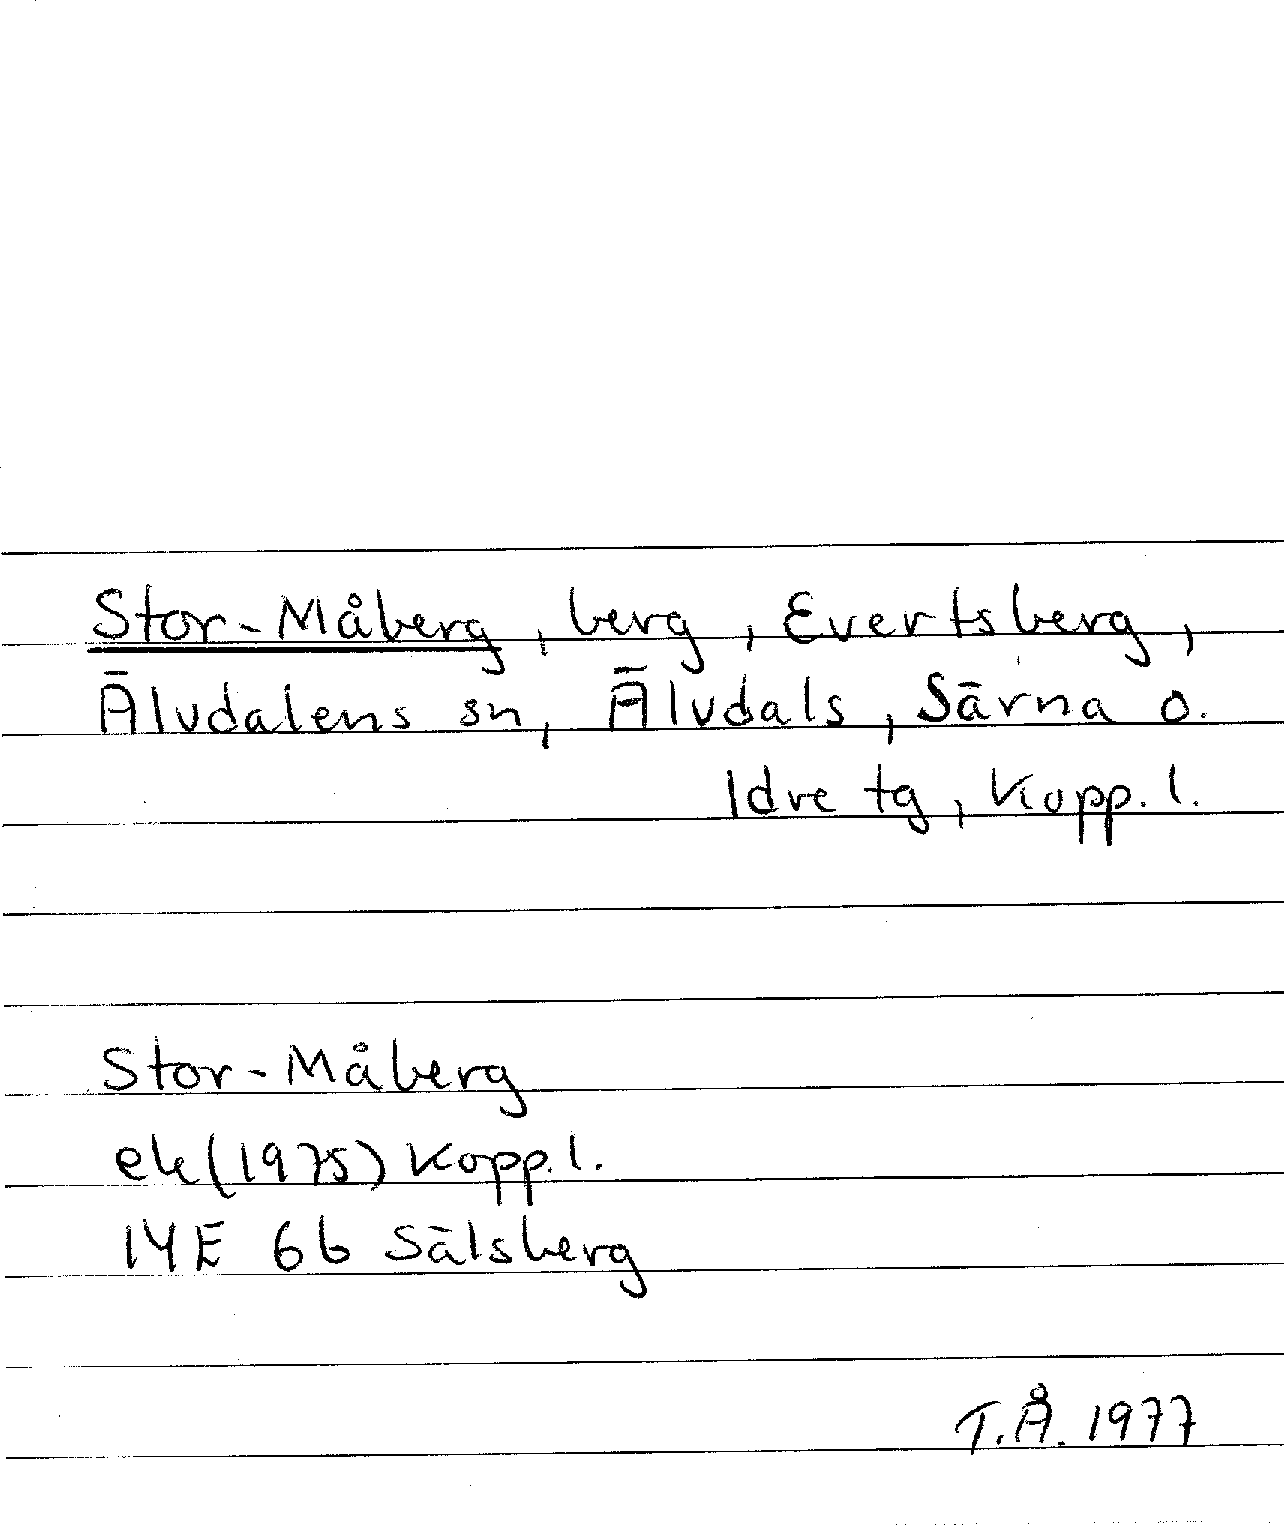 Stor-Måberg, berg, Evertsberg,
Älvdalens sn, Älvdals, Särna o.
Idre tg, Kopp. l.
Stor-Måberg
ek (1975) Kopp. l.
14E 6b Sälsberg
T.Å. 1977